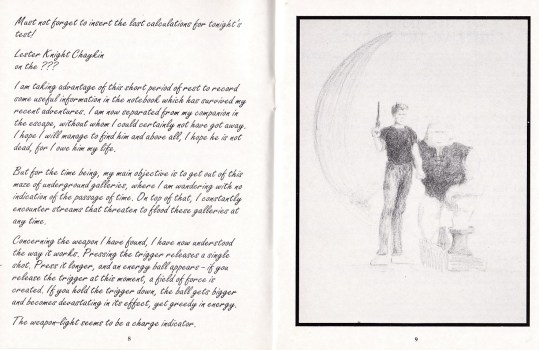 Must not forget to insert the last calculations for tonight's
test!
Lester Knight Chaykin
on the ???
I am taking advantage of this short period of rest to record
some useful information in the notebook which has survived my
recent adventures. I am now separated from my companion in
the escape, without whom I could certainly not have got away.
I hope I will manage to find him and above all, I hope he is not
dead, for I owe him my life.
But for the time being, my main objective is to get out of this
maze of underground galleries, where I am wandering with no
indication of the passage of time. On top of that, I constantly
encounter streams that threaten to flood these galleries at
any time.
Concerning the weapon I have found, I have now understood
the way it works. Pressing the trigger releases a single
shot. Press it longer, and an energy ball appears - if you
release the trigger at this moment, a field of force is
created. If you hold the trigger down, the ball gets bigger
and becomes devastating in its effect, yet greedy in energy.
The weapon-light seems to be a charge indicator.
8
9